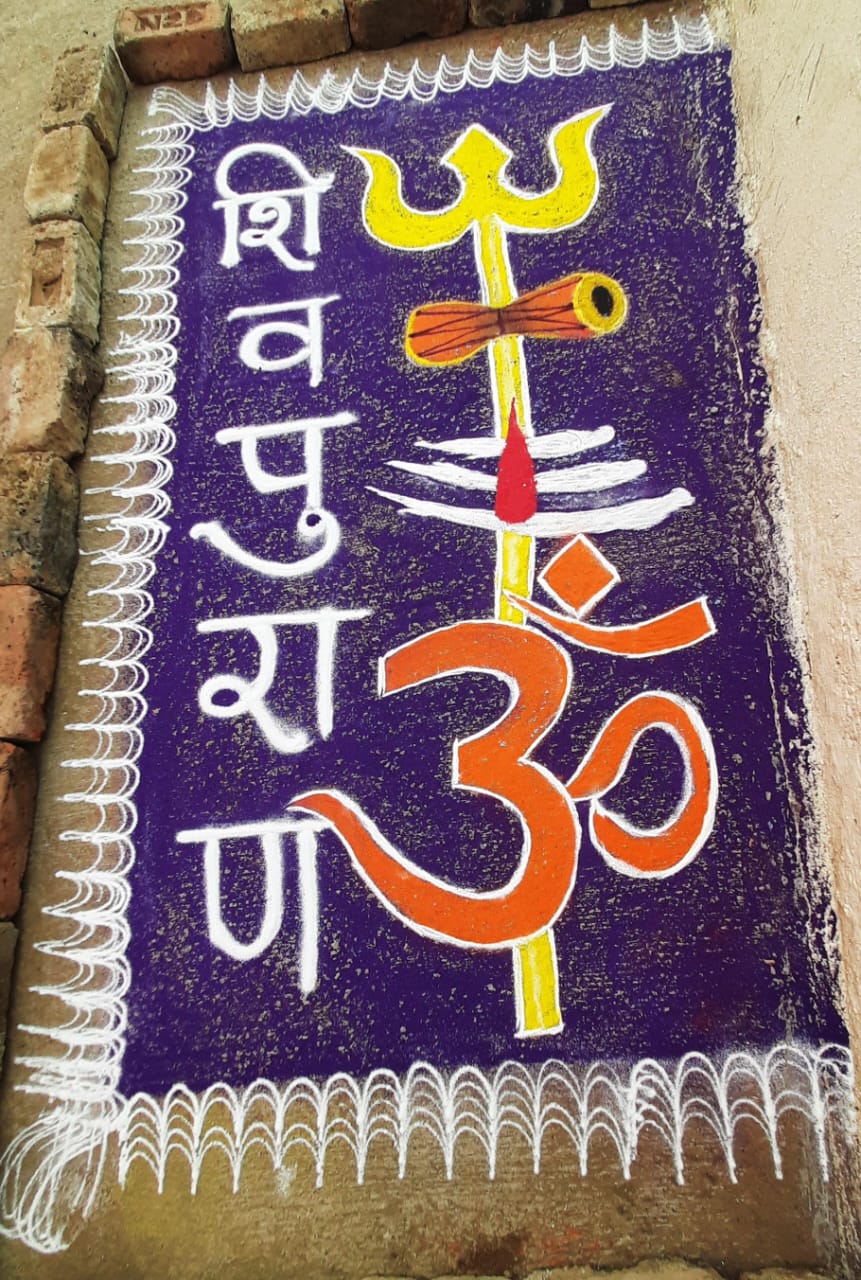 N2B
शि
व
पु
रा
ण
ॐ